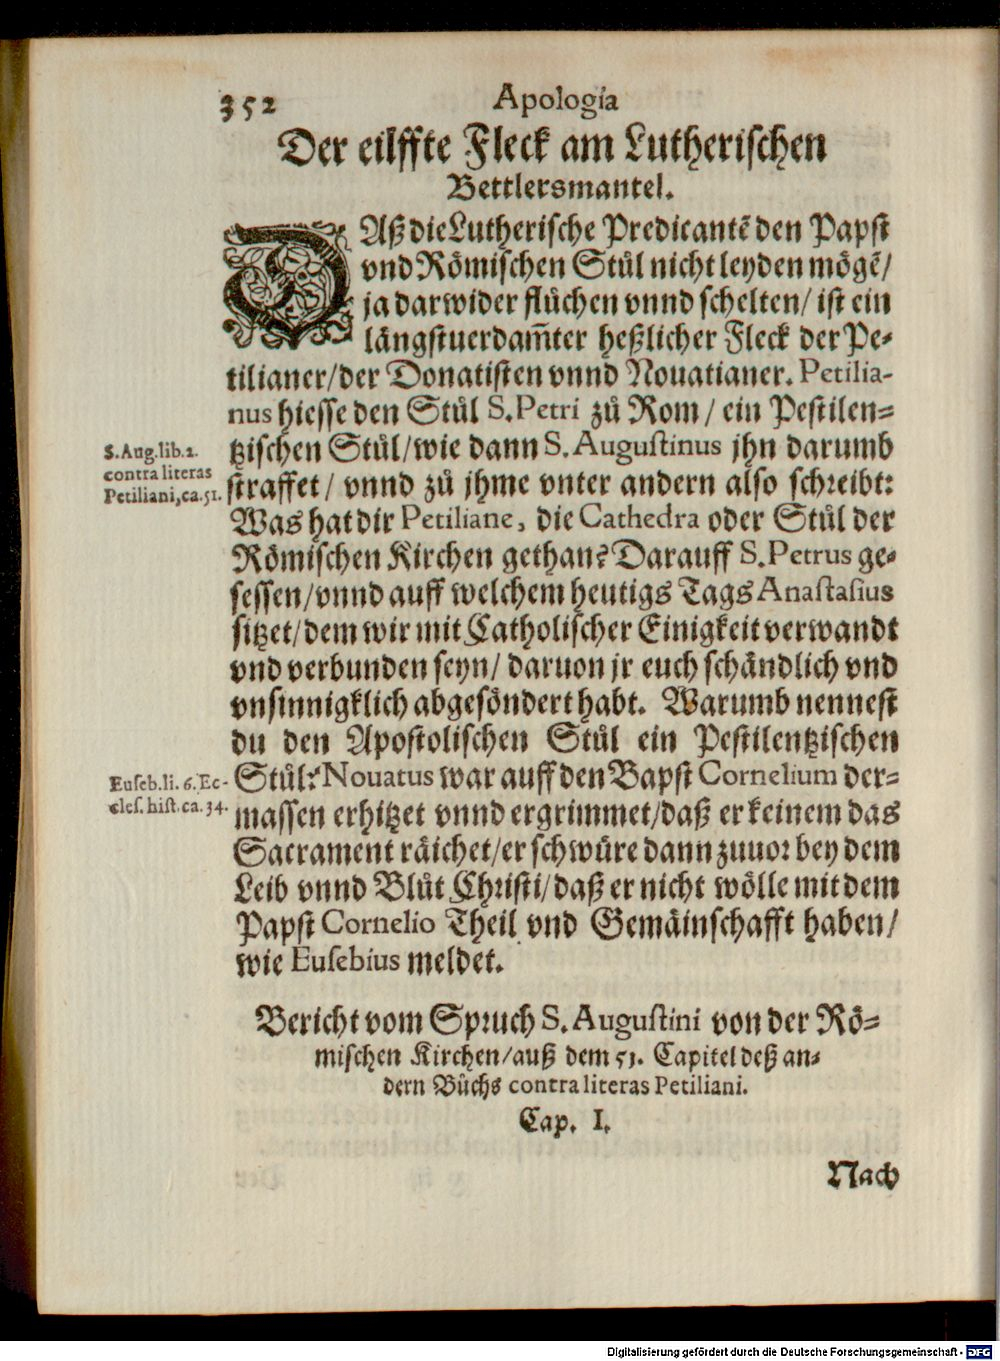 352 Apologia
Der eilffte Fleck am Lutherischen
Bettlersmantel.
DAß die Lutherische Predicantẽ den Papst
vnd Römischen Stůl nicht leyden mögẽ/
ja darwider flůchen vnnd schelten/ ist ein
längstuerdam̃ter heßlicher Fleck der Pe-
tilianer/der Donatisten vnnd Nouatianer. Petilia-
nus hiesse den Stůl S. Petri zů Rom/ ein Pestilen-
tzischen Stůl/wie dann S. Augustinus jhn darumb
straffet/ vnnd zů jhme vnter andern also schreibt:
Was hat dir Petiliane, die Cathedra oder Stůl der
Römischen Kirchen gethan? Darauff S. Petrus ge-
sessen/vnnd auff welchem heutigs Tags Anastasius
sitzet/dem wir mit Catholischer Einigkeit verwandt
vnd verbunden seyn/ daruon jr euch schändlich vnd
vnsinnigklich abgesöndert habt. Warumb nennest
du den Apostolischen Stůl ein Pestilentzischen
Stůl? Nouatus war auff den Bapst Cornelium der-
massen erhitzet vnnd ergrimmet/daß er keinem das
Sacrament räichet/er schwüre dann zuuor bey dem
Leib vnnd Blůt Christi/daß er nicht wölle mit dem
Papst Cornelio Theil vnd Gemäinschafft haben/
wie Eusebius meldet.
S. Aug. lib. 2.
contra literas
Petiliani, ca. 51.
Euseb. li. 6. Ec-
cles. hist. ca. 34.
Bericht vom Spruch S. Augustini von der Rö-
mischen Kirchen/auß dem 51. Capitel deß an-
dern Bůchs contra literas Petiliani.
Cap. I.
Nach
Digitalisierung gefördert durch die Deutsche Forschungsgemeinschaft - DFG